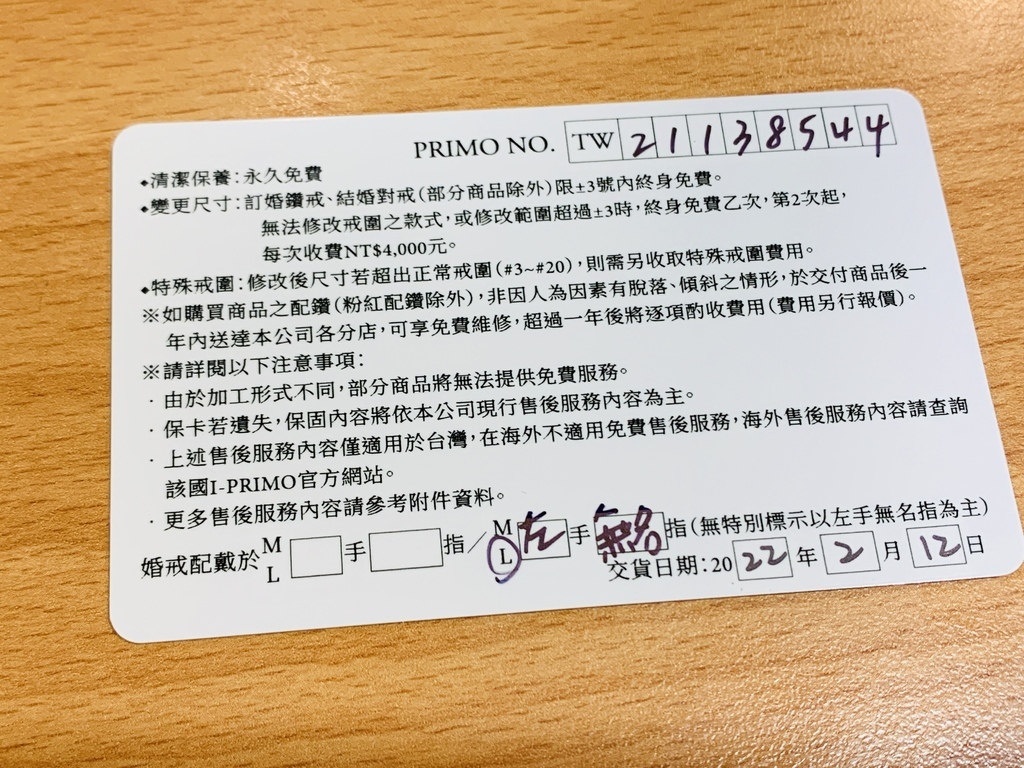 PRIMO NO. TW 21138544
◆清潔保養:永久免費
◆變更尺寸:訂婚鑽戒、結婚對戒(部分商品除外)限±3號內終身免費。
無法修改戒圍之款式,或修改範圍超過±3時,終身免費乙次,第2次起,
每次收費NT$4,000元。
◆特殊戒圍:修改後尺寸若超出正常戒圍(#3~#20),則需另收取特殊戒圍費用。
※如購買商品之配鑽(粉紅配鑽除外),非因人為因素有脫落、傾斜之情形,於交付商品後一
年內送達本公司各分店,可享免費維修,超過一年後將逐項酌收費用(費用另行報價)。
※請詳閱以下注意事項:
· 由於加工形式不同,部分商品將無法提供免費服務。
· 保卡若遺失,保固內容將依本公司現行售後服務內容為主。
· 上述售後服務內容僅適用於台灣,在海外不適用免費售後服務,海外售後服務內容請查詢
該國I-PRIMO官方網站。
· 更多售後服務內容請參考附件資料。
婚戒配戴於 M L 手 指/ M L 左 手 無名 指(無特別標示以左手無名指為主)
交貨日期:2022年2月12日